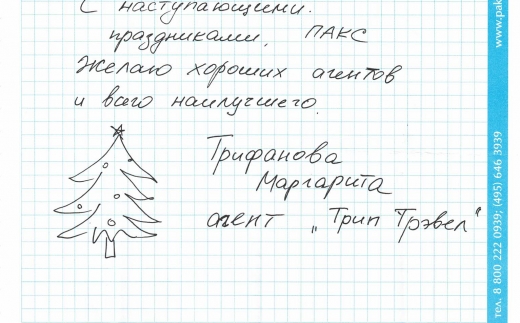 С наступающими
праздниками, ПАКС
Желаю хороших агентов
и всего наилучшего.
Трифанова
Маргарита
агент „Трип Трэвел"
www.pak
тел. 8 800 222 0939; (495) 646 3939